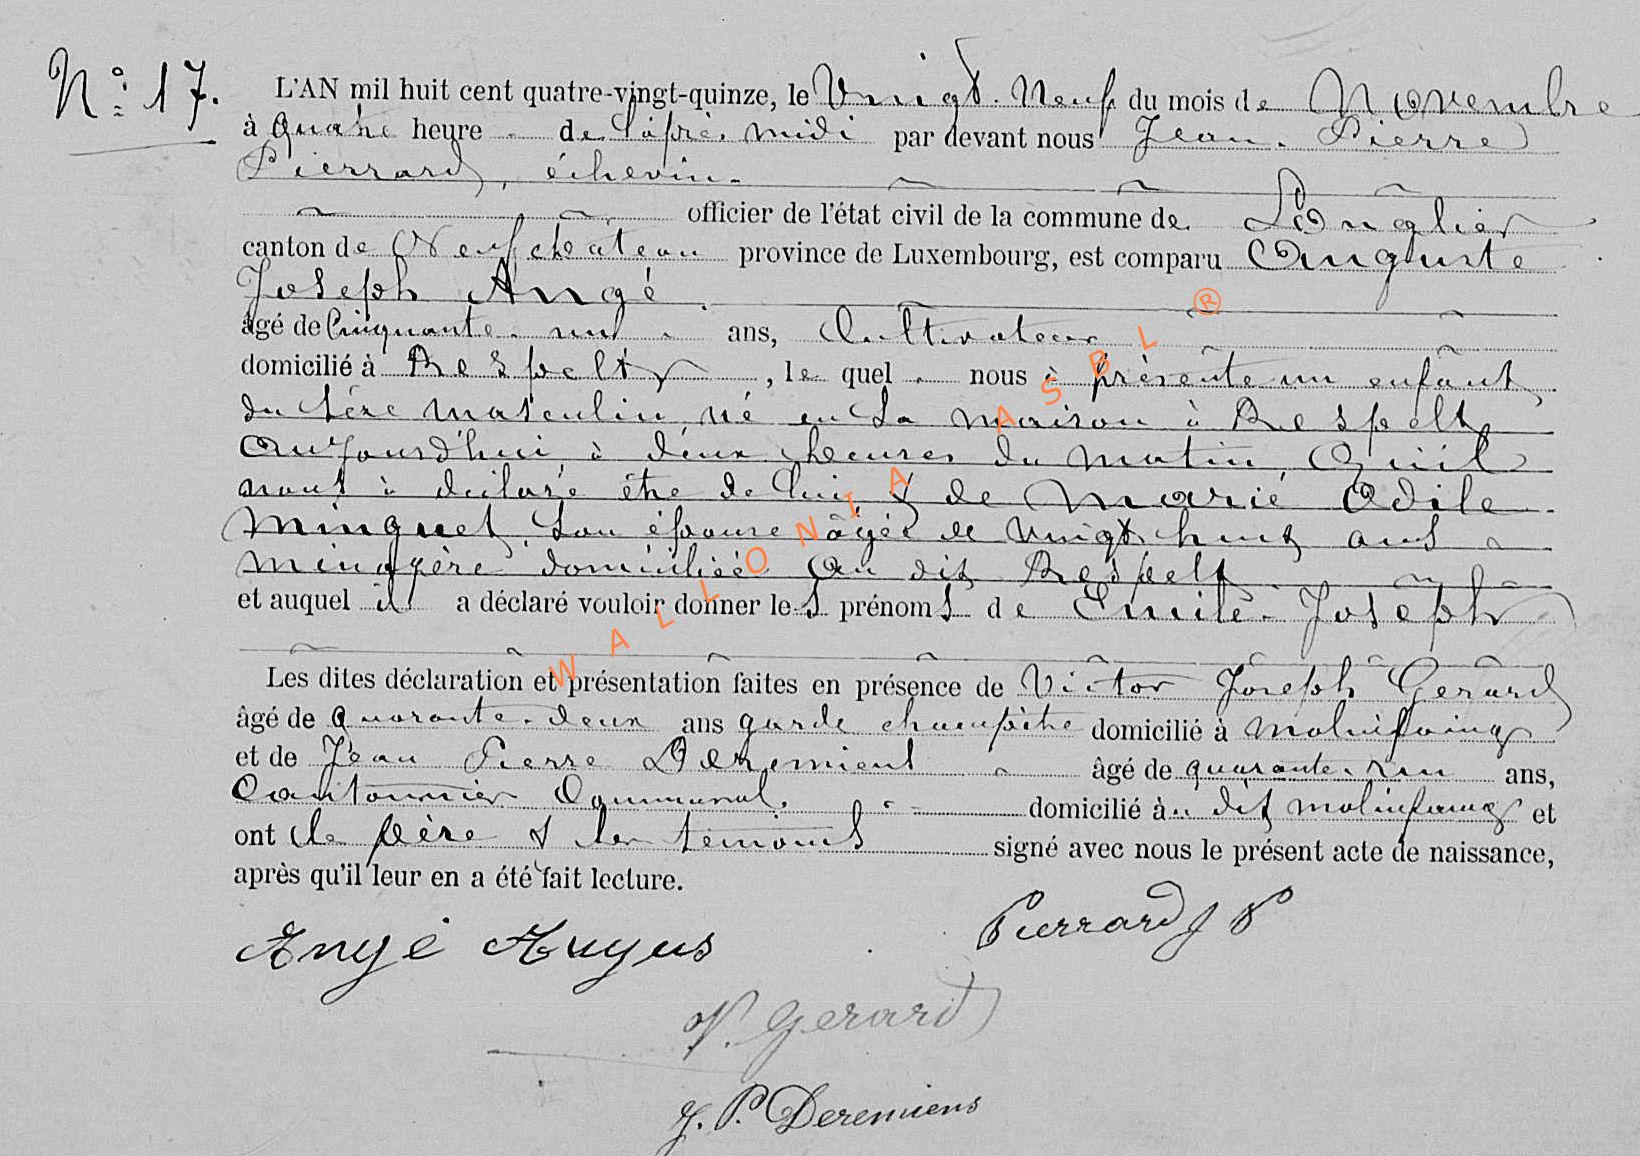 N° 17.
L'AN mil huit cent quatre-vingt-quinze, le Vingt. Neuf du mois de Novembre
à Quatre heure de l'après midi par devant nous Jean. Pierre
Pierrard, échevin.
officier de l'état civil de la commune de Longlier
canton de Neufchâteau province de Luxembourg, est comparu Auguste
Joseph Angé
âgé de Cinquante. un ans, Cultivateur
domicilié à Respelt, le quel nous à présenté un enfant
du séxe masculin, né en sa maison à Respelt
aujourd'hui à deux heures du matin, Qu'il
nous à déclaré être de lui & de Marie Odile
Minguet, son épouse âgée de Vingt huit ans
ménagère domiciliée au dit Respelt
et auquel il a déclaré vouloir donner les prénoms de Emile. Joseph
Les dites déclaration et présentation faites en présence de Victor Joseph Gerard
âgé de Quarante. deux ans garde champêtre domicilié à Molinfaing
et de Jean Pierre Deremiens âgé de quarante. ans,
Cantonnier Communal. domicilié à dit molinfaing et
ont le père & les témoins signé avec nous le présent acte de naissance,
après qu'il leur en a été fait lecture.
Angé Augus
Pierrard J P
V. Gerard
J. P. Deremiens
WALLONIA ASBL ®